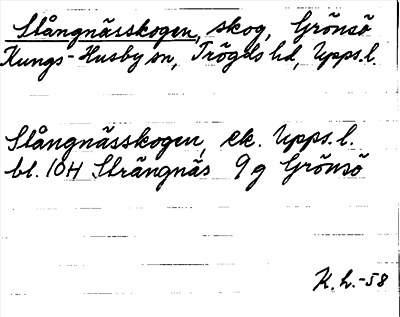 Slångnässkogen, skog, Grönsö
Kungs-Husby sn, Trögds hd, Upps.l.
Slångnässkogen, ek. Upps.l.
bl. 10H Strängnäs 9g Grönsö
K.h.-58